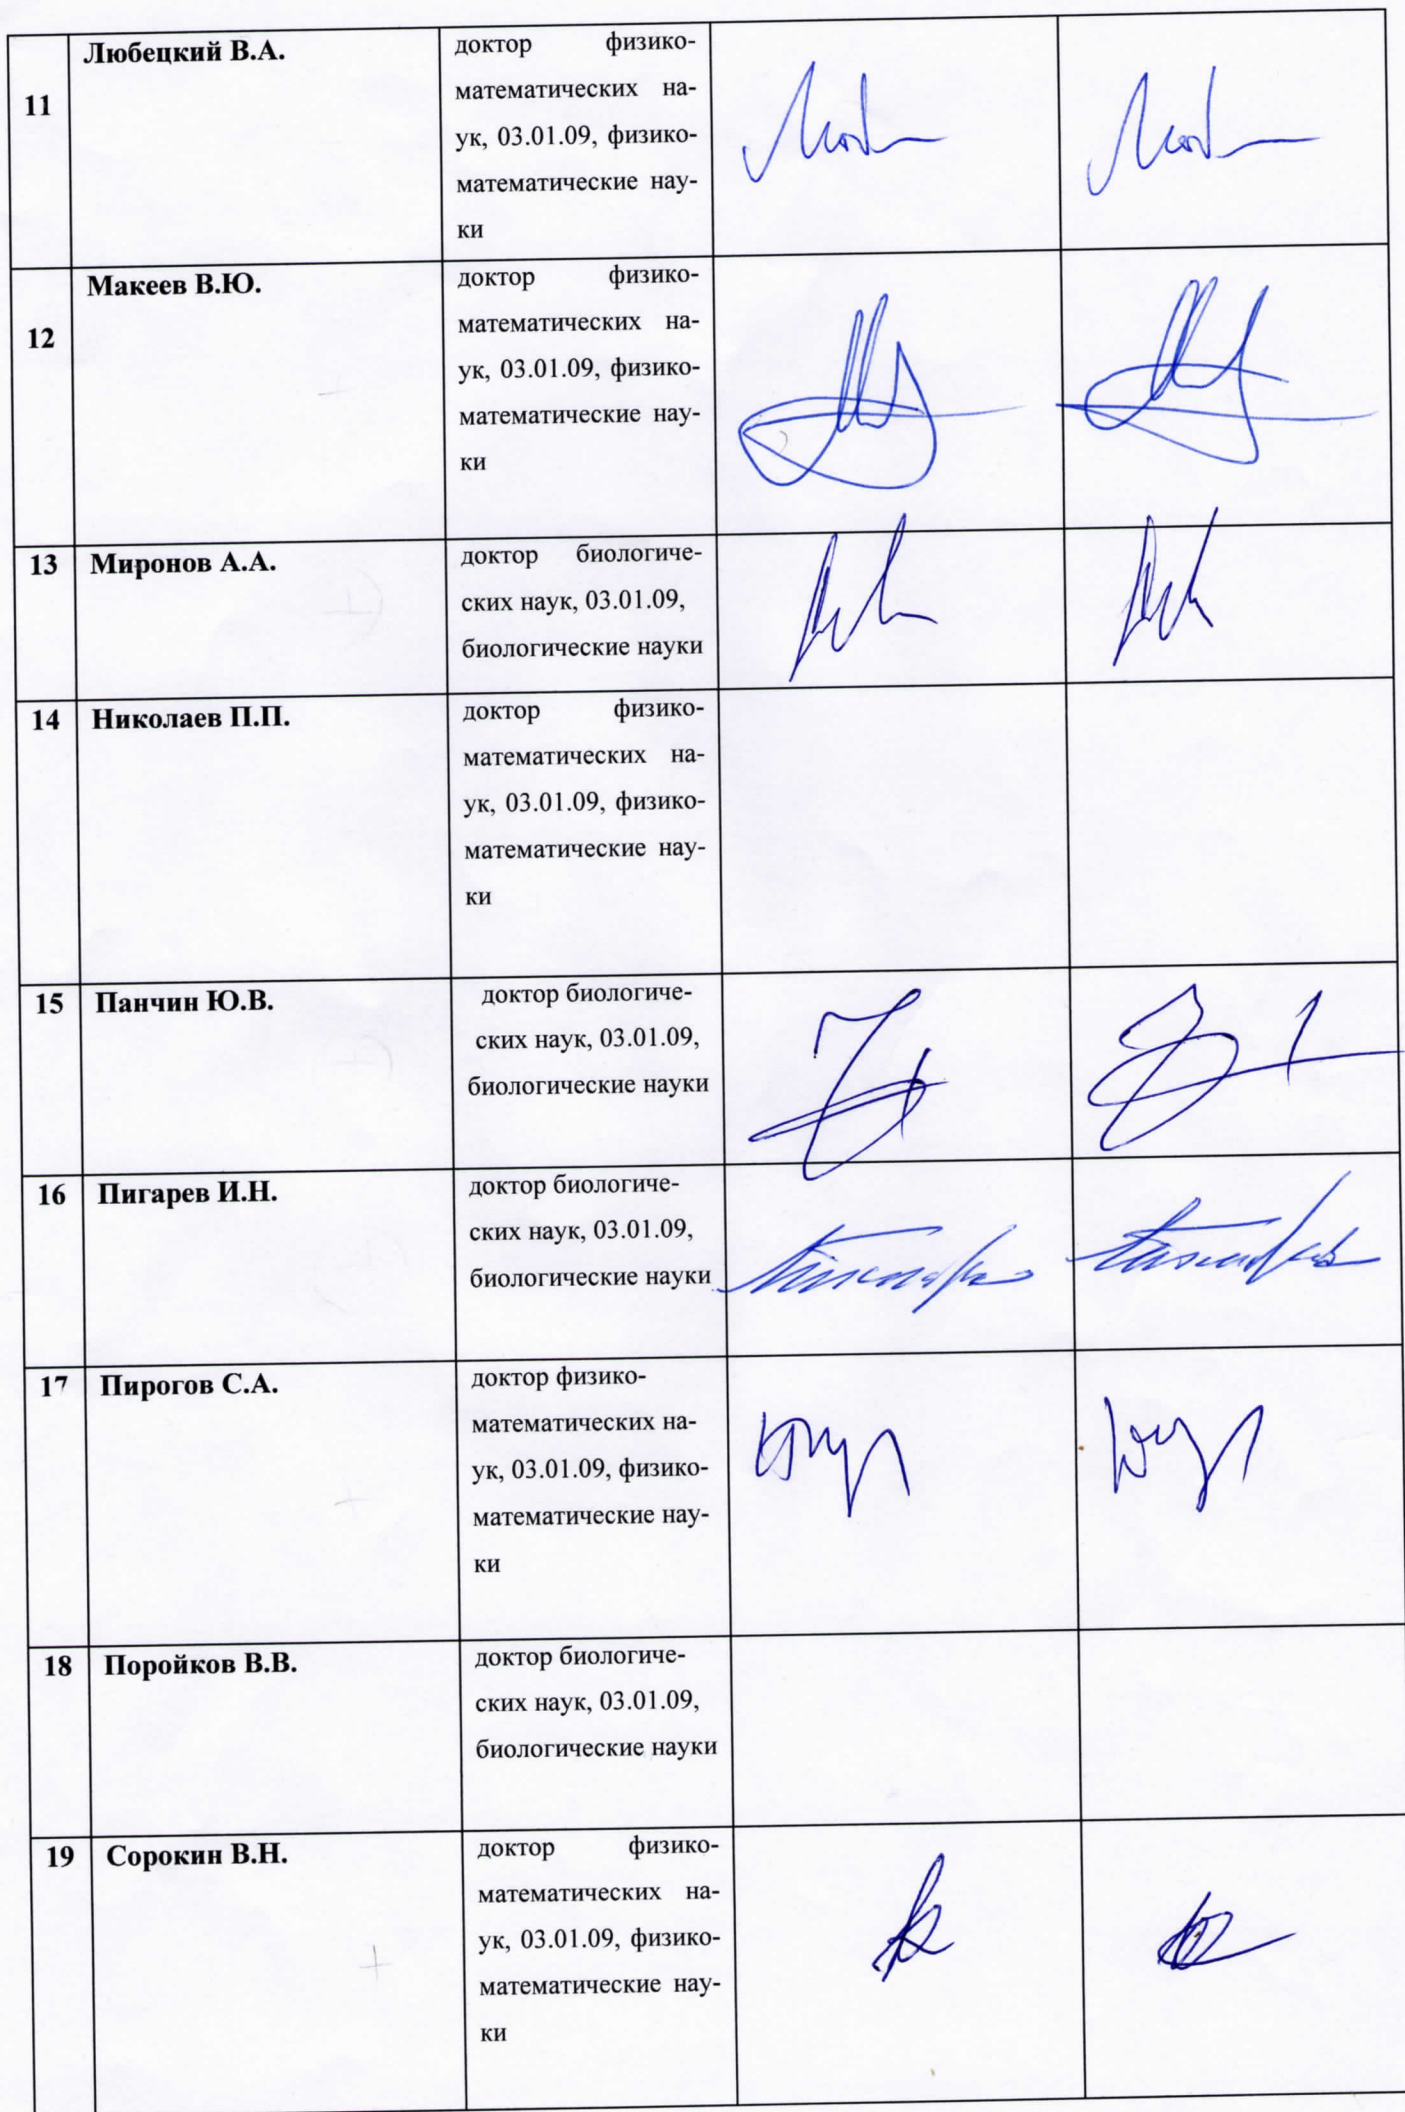 11 Любецкий В.А. доктор физико-
математических на-
ук, 03.01.09, физико-
математические нау-
ки
12 Макеев В.Ю. доктор физико-
математических на-
ук, 03.01.09, физико-
математические нау-
ки
13 Миронов А.А. доктор биологиче-
ских наук, 03.01.09,
биологические науки
14 Николаев П.П. доктор физико-
математических на-
ук, 03.01.09, физико-
математические нау-
ки
15 Панчин Ю.В. доктор биологиче-
ских наук, 03.01.09,
биологические науки
16 Пигарев И.Н. доктор биологиче-
ских наук, 03.01.09,
биологические науки
17 Пирогов С.А. доктор физико-
математических на-
ук, 03.01.09, физико-
математические нау-
ки
18 Поройков В.В. доктор биологиче-
ских наук, 03.01.09,
биологические науки
19 Сорокин В.Н. доктор физико-
математических на-
ук, 03.01.09, физико-
математические нау-
ки